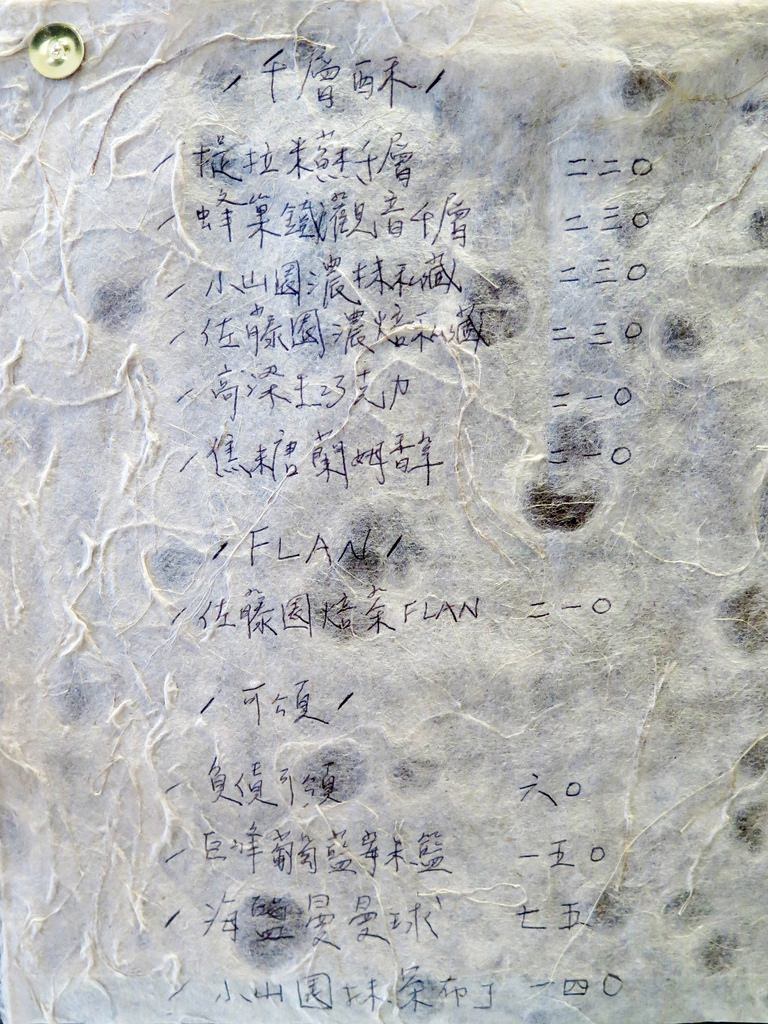 /千層酥/
/提拉米蘇千層 二二〇
/蜂巢鐵觀音千層 二三〇
/小山園濃抹私藏 二三〇
/佐藤園濃焙私藏 二三〇
/高梁生巧克力 二一〇
/焦糖蘭姆香草 二一〇
/FLAN/
/佐藤園焙茶FLAN 二一〇
/可頌/
/負債可頌 六〇
/巨峰葡萄藍莓米籃 一五〇
/海鹽曼曼球 七五
/小山園抹茶布丁 一四〇